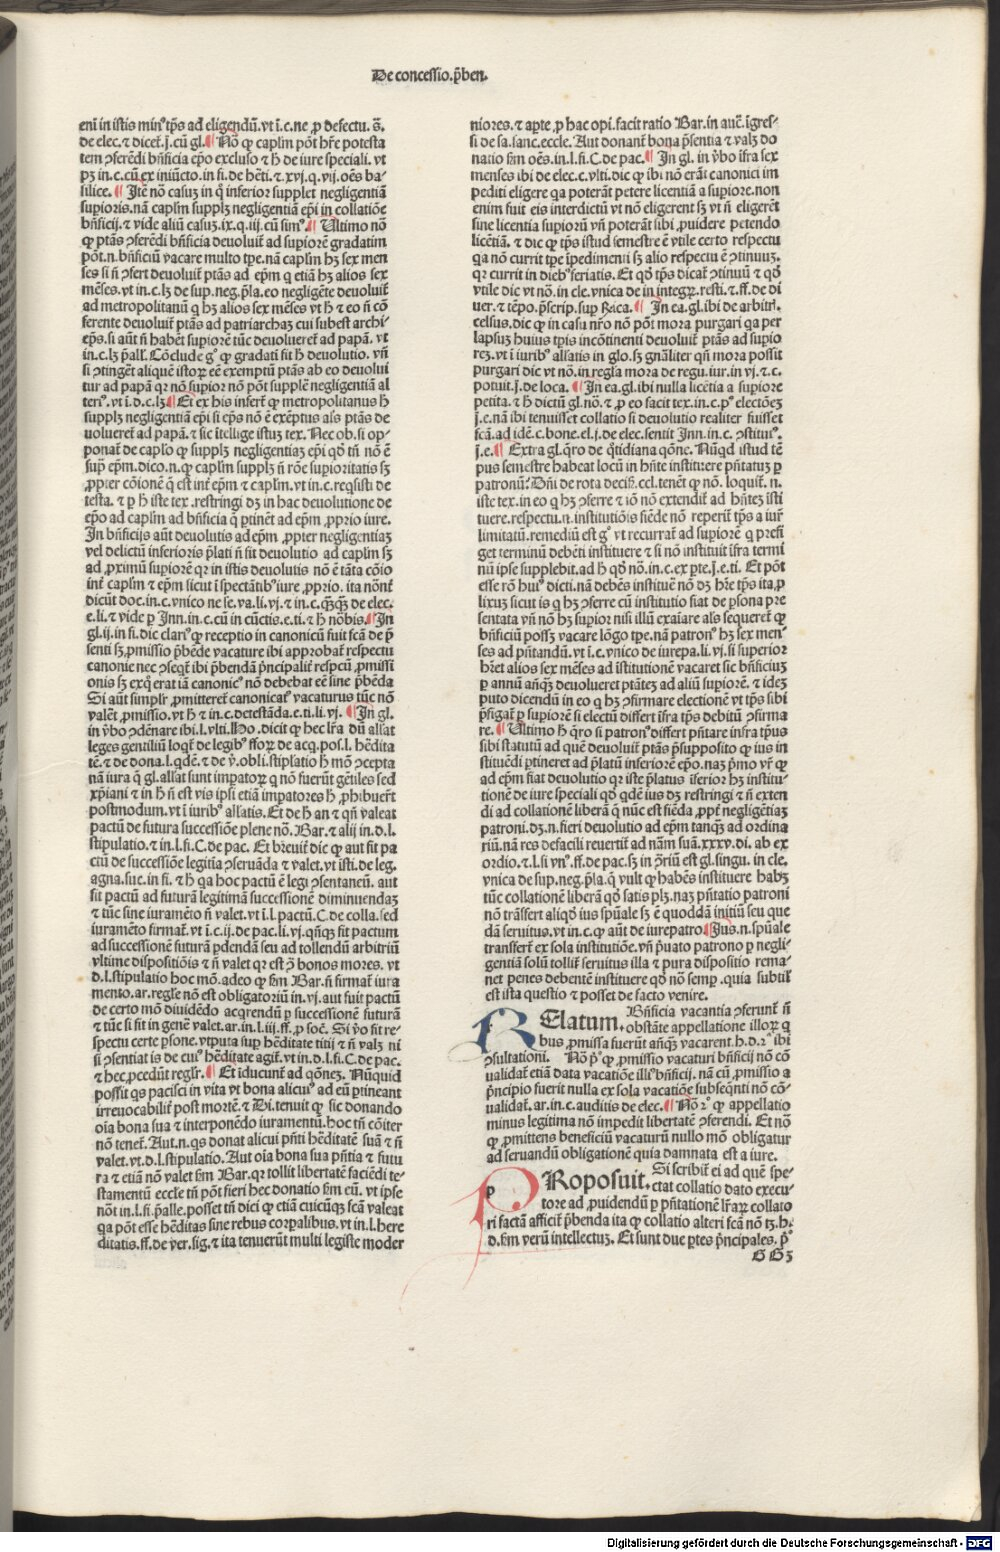 De concessio.p̄ben.
enī in istis minꝰ tp̄s ad eligendū.vt ī.c.ne ꝓ defectu. s̄.
de elec.⁊ dicet̄.j.cū gl. ¶ Nō ꝙ capl̄m pōt hr̄e potesta
tem ꝯferēdi bn̄ficia ep̄o excluso ⁊ h̄ de iure speciali. vt
pꝫ in.c.cū ex iniūcto.in fi.de hēti.⁊.xvj.q.vij.oēs ba⸗
silice. ¶ Itē nō casuꝫ in q̄ inferior supplet negligentiā
supioris.nā capl̄m supplꝫ negligentiā ep̄i in collatiōe
bn̄ficij.⁊ vide aliū casuꝫ.ix.q.iij.cū simꝰ. ¶ Ultimo nō
ꝙ ptās ꝯferēdi bn̄ficia deuoluit̄ ad supiorē gradatim
pōt.n.bn̄ficiū vacare multo tp̄e.nā capl̄m hꝫ sex men
ses si n̄ ꝯfert deuoluit̄ ptās ad ep̄m q etiā hꝫ alios sex
mēses.vt in.c.lꝫ de sup.neg.p̄la.eo negligēte deuoluit̄
ad metropolitanū q hꝫ alios sex mēses vt h̄ ⁊ eo n̄ cō
ferente deuoluit̄ ptās ad patriarchaꝫ cui subest archi⸗
ep̄s.si aūt n̄ habet̄ supiorē tūc deuolueret̄ ad papā. vt
in.c.lꝫ p̄all̄. Cōclude gͦ ꝙ gradati fit h̄ deuolutio. vn̄
si ꝯtinget̄ aliquē istoꝝ eē exemptū ptās ab eo deuolui
tur ad papā qꝛ nō supior nō pōt supplēe negligentiā al
terꝰ.vt ī.d.c.lꝫ ¶ Et ex his infert̄ ꝙ metropolitanus h̄
supplꝫ negligentiā ep̄i si ep̄s nō ē exēptus al̄s ptās de
uolueret̄ ad papā.⁊ sic ītellige istuꝫ tex. Nec ob.si op⸗
ponat̄ de caplo ꝙ supplꝫ negligentiaꝫ ep̄i qd̄ tn̄ nō ē
sup̄ ep̄m.dico.n.ꝙ capl̄m supplꝫ n̄ rōe supioritatis sꝫ
ꝓpter cōionē q̄ est int̄ ep̄m ⁊ capl̄m.vt in.c.reqsisti de
testa. ⁊ p h̄ iste tex.restringi dꝫ in hac deuolutione de
ep̄o ad capl̄m ad bn̄ficia q̄ ptinēt ad ep̄m ꝓprio iure.
In bn̄ficijs aūt deuolutis ad ep̄m ꝓpter negligentiaꝫ
vel delictū inferioris p̄lati n̄ fit deuolutio ad capl̄m sꝫ
ad ꝓximū supiorē qꝛ in istis deuolutis nō ē tāta cōio
int̄ capl̄m ⁊ ep̄m sicut ī spectātibꝰ iure ꝓprio. ita nōnt̄
dicūt doc.in.c.vnico ne se.va.li.vj.⁊ in.c.q̄ꝫq̄ꝫ de elec.
e.li.⁊ vide p Inn.in.c.cū in cūctis.e.ti.⁊ h̄ nōbis. ¶ In
gl.ij.in fi.dic clarꝰ ꝙ receptio in canonicū fuit fcā de p̄
senti sꝫ ꝓmissio p̄bēde vacature ibi approbat̄ respectu
canonie nec ꝯseqt̄ ibi p̄bendā p̄ncipalit̄ respcū ꝓmissi
onis sꝫ exq̄ erat iā canonicꝰ nō debebat eē sine p̄bēda
Si aūt simplr̄ ꝓmitteret̄ canonicatꝰ vacaturus tūc nō
valet̄ ꝓmissio.vt h̄ ⁊ in.c.detestāda.e.ti.li.vj. ¶ In gl.
in v̄bo ꝯdēnare ibi.l.vlti.No.dicit ꝙ hec lr̄a dū allat
leges gentiliū loqt̄ de legibꝰ fforꝝ de acq.pos.l. hēdita
tē.⁊ de dona.l.qdē.⁊ de v̄.obli.stiplatio h̄ mō ꝯcepta
nā iura q̄ gl.allat sunt impatoꝝ q nō fuerūt gētiles sed
xp̄iani ⁊ in h̄ n̄ est vis ipsi etiā impatores h̄ ꝓhibuerūt
postmodum.vt ī iuribꝰ all̄atis. Et de h̄ an ⁊ qn̄ valeat
pactū de futura successiōe plene nō. Bar.⁊ alij in.d.l.
stipulatio.⁊ in.l.fi.C.de pac. Et breuit̄ dic ꝙ aut fit pa
ctū de successiōe legitīa ꝯseruāda ⁊ valet.vt ī sti.de leg.
agna.suc.in fi.⁊ h̄ qa hoc pactū ē legi ꝯsentaneū. aut
fit pactū ad futurā legitimā successionē diminuendaꝫ
⁊ tūc sine iuramēto n̄ valet.vt ī.l.pactū.C.de colla.sed
iuramēto firmat̄.vt ī.c.ij.de pac.li.vj.qn̄qꝫ fit pactum
ad successionē futurā pdendā seu ad tollendū arbitriū
vltime dispositiōis ⁊ n̄ valet qꝛ est ꝯ̄ bonos mores. vt
d.l.stipulatio hoc mō.adeo ꝙ fm̄ Bar.n̄ firmat̄ iura
mento.ar.regl̄e nō est obligatoriū in.vj.aut fuit pactū
de certo mō diuidēdo acqrendū p successionē futurā
⁊ tūc si fit in genēe valet.ar.in.l.iij.ff.ꝓ soc̄. Si v̄o fit re⸗
spectu certe psone.vtputa sup̄ hēditate titij ⁊ n̄ valꝫ ni
si ꝯsentiat is de cuiꝰ hēditate agit̄.vt in.d.l.fi.C.de pac.
⁊ hec ꝓcedūt reglr̄. ¶ Et īducunt̄ ad qōneꝫ. Nūquid
possit qs pacisci in vita vt bona alicuiꝰ ad eū ptineant
irreuocabilit̄ post mortē.⁊ Di.tenuit ꝙ sic donando
oīa bona sua ⁊ interponēdo iuramentū.hoc tn̄ cōiter
nō tenet̄. Aut.n.qs donat alicui p̄nti hēditatē suā ⁊ n̄
valet.vt.d.l.stipulatio. Aut oīa bona sua p̄ntia ⁊ futu
ra ⁊ etiā nō valet fm̄ Bar.qꝛ tollit libertatē faciēdi te⸗
stamentū eccle tn̄ pōt fieri hec donatio fm̄ eū. vt ipse
nōt in.l.fi.p̄alle.posset tn̄ dici ꝙ etiā cuicūqꝫ fcā valeat
qa pōt esse hēditas sine rebus corpalibus.vt in.l.here
ditatis.ff.de ver.sig.⁊ ita tenuerūt multi legiste moder
niores.⁊ apte.ꝓ hac opi.facit ratio Bar.in auc̄.īgres⸗
si de sa.sanc.eccle. Aut donant̄ bona p̄sentia ⁊ valꝫ do
natio fm̄ oēs.in.l.fi.C.de pac. ¶ In gl. in v̄bo īfra sex
menses ibi de elec.c.vlti.dic ꝙ ibi nō erāt canonici im
pediti eligere qa poterāt petere licentiā a supiore.non
enim fuit eis interdictū vt nō eligerent sꝫ vt n̄ eligerēt
sine licentia supiorū vn̄ poterāt sibi ꝓuidere petendo
licētiā. ⁊ dic ꝙ tp̄s istud semestre ē vtile certo respectu
qa nō currit tp̄e īpedimenti sꝫ alio respectu ē ꝯtinuuꝫ.
qꝛ currit in diebꝰ feriatis. Et qd̄ tp̄s dicat̄ ꝯtinuū ⁊ qd̄
vtile dic vt nō.in cle.vnica de in integꝝ.resti.⁊.ff.de di
uer.⁊ tēpo.p̄scrip.sup R̄ica. ¶ In ea.gl.ibi de arbitrī.
celsus.dic ꝙ in casu nr̄o nō pōt mora purgari qa per
lapsuꝫ huius tp̄is incōtinenti deuoluit̄ ptās ad supio
reꝫ.vt ī iuribꝰ all̄atis in glo.sꝫ gn̄aliter qn̄ mora possit
purgari dic vt nō.in regl̄a mora de regu.iur.in vj.⁊.c.
potuit.j.de loca. ¶ In ea.gl.ibi nulla licētia a supiore
petita.⁊ h̄ dictū gl.nō.⁊ ꝓ eo facit tex.in.c.pꝰ electōeꝫ
j.e.nā ibi tenuisset collatio si deuolutio realiter fuisset
fcā.ad idē.c.bone.el.j.de elec.sentit Inn.in.c. ꝯstituꝰ.
j.e. ¶ Extra gl.q̄ro de q̄tidiana qōne. Nūqd istud tē
pus semestre habeat locū in hn̄te instituere p̄ntatuꝫ p
patronū? Dn̄i de rota decis̄.ccl.tenēt ꝙ nō. loquit̄. n.
iste tex.in eo q hꝫ ꝯferre ⁊ iō nō extendit̄ ad hn̄teꝫ īsti
tuere.respectu.n.institutiōis fiēde nō reperit̄ tp̄s a iur̄
limitatū.remediū est gͦ vt recurrat̄ ad supiorē q prefi
get terminū debēti instituere ⁊ si nō instituit īfra termi
nū ipse supplebit.ad h̄ qd̄ nō.in.c.ex pte.j.e.ti. Et pōt
esse rō huiꝰ dicti.nā debēs instituē nō dꝫ hr̄e tp̄s ita ꝓ
lixuꝫ sicut is q hꝫ ꝯferre cū institutio fiat de psona pre
sentata vn̄ nō hꝫ supior nisi illū exaīare al̄s sequeret̄ ꝙ
bn̄ficiū possꝫ vacare lōgo tp̄e.nā patronꝰ hꝫ sex men⸗
ses ad p̄ntandū.vt ī.c.vnico de iurepa.li.vj.si superior
hr̄et alios sex mēses ad īstitutionē vacaret sic bn̄ficiuꝫ
p annū an̄qꝫ deuolueret ptāteꝫ ad aliū supiorē. ⁊ ideꝫ
puto dicendū in eo q hꝫ ꝯfirmare electionē vt tp̄s sibi
p̄figat̄ p supiorē si electū differt īfra tp̄s debitū ꝯfirma
re. ¶ Ultimo h̄ q̄ro si patronꝰ differt p̄ntare infra tp̄us
sibi statutū ad quē deuoluit̄ ptās p̄supposito ꝙ ius in
stituēdi ptineret ad p̄latū inferiorē ep̄o.naꝫ p̄mo vr̄ ꝙ
ad ep̄m fiat deuolutio qꝛ iste p̄latus īferior hꝫ institu⸗
tionē de iure speciali qd̄ qdē ius dꝫ restringi ⁊ n̄ exten
di ad collationē liberā q̄ nūc est fiēda ꝓpt̄ negligētiaꝫ
patroni.dꝫ.n.fieri deuolutio ad ep̄m tanqꝫ ad ordina
riū.nā res defacili reuertit̄ ad nām suā.xxxv.di. ab ex
ordio.⁊.l.si vnꝰ.ff.de pac.sꝫ in ꝯ̄riū est gl.singu. in cle.
vnica de sup.neg.p̄la.q̄ vult ꝙ habēs instituere habꝫ
tūc collationē liberā qd̄ satis plꝫ.naꝫ p̄ntatio patroni
nō trāsfert aliqd̄ ius sp̄uale sꝫ ē quoddā initiū seu que
dā seruitus.vt in.c.ꝙ aūt de iurepatro. ¶ Jus.n.sp̄uale
transfert̄ ex sola institutiōe.vn̄ p̄uato patrono p negli⸗
gentiā solū tollit̄ seruitus illa ⁊ pura dispositio rema⸗
net penes debentē instituere qd̄ nō semp.quia subtil̄
est ista questio ⁊ posset de facto venire.
RElatum. Bn̄ficia vacantia ꝯferunt̄ n̄
obstāte appellatione illoꝝ q
bus ꝓmissa fuerūt an̄qꝫ vacarent.h.d.2ꝰ ibi
ꝯsultationi. Nō p̄ꝰ ꝙ ꝓmissio vacaturi bn̄ficij nō cō
ualidat̄ etiā data vacatiōe illiꝰ bn̄ficij.nā cū ꝓmissio a
p̄ncipio fuerit nulla ex sola vacatiōe subseqn̄ti nō cō⸗
ualidat̄.ar.in.c.auditis de elec. ¶ Nō 2ꝰ ꝙ appellatio
minus legitima nō impedit libertatē ꝯferendi. Et nō
ꝙ ꝓmittens beneficiū vacaturū nullo mō obligatur
ad seruandū obligationē quia damnata est a iure.
PRoposuit. Si scribit̄ ei ad quē spe⸗
ctat collatio dato execu⸗
tore ad ꝓuidendū p p̄ntationē lr̄aꝝ collato
ri factā afficit̄ p̄benda ita ꝙ collatio alteri fcā nō tꝫ.h.
d.fm̄ verū intellectuꝫ. Et sunt due ptes p̄ncipales. p̄ꝰ
G G 3
Digitalisierung gefördert durch die Deutsche Forschungsgemeinschaft - DFG